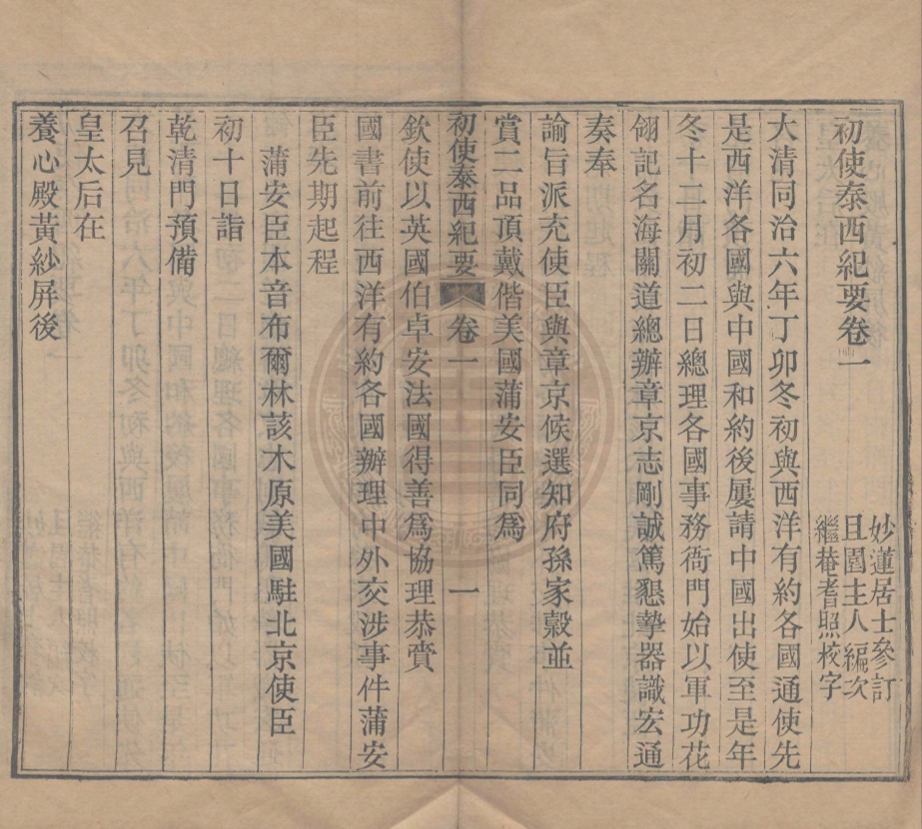 初使泰西紀要卷一
妙蓮居士參訂
且園主人編次
繼菴耆照校字
大清同治六年丁卯冬初與西洋有約各國通使先
是西洋各國與中國和約後屢請中國出使至是年
冬十二月初二日總理各國事務衙門始以軍功花
翎記名海關道總辦章京志剛誠篤懇摯器識宏通
奏奉
諭旨派充使臣與章京候選知府孫家穀並
賞二品頂戴偕美國蒲安臣同爲
初使泰西紀要 卷一 一
欽使以英國伯卓安法國得善爲協理恭賷
國書前往西洋有約各國辦理中外交涉事件蒲安
臣先期起程
蒲安臣本音布爾林該木原美國駐北京使臣
初十日詣
乾清門預備
召見
皇太后在
養心殿黃紗屏後